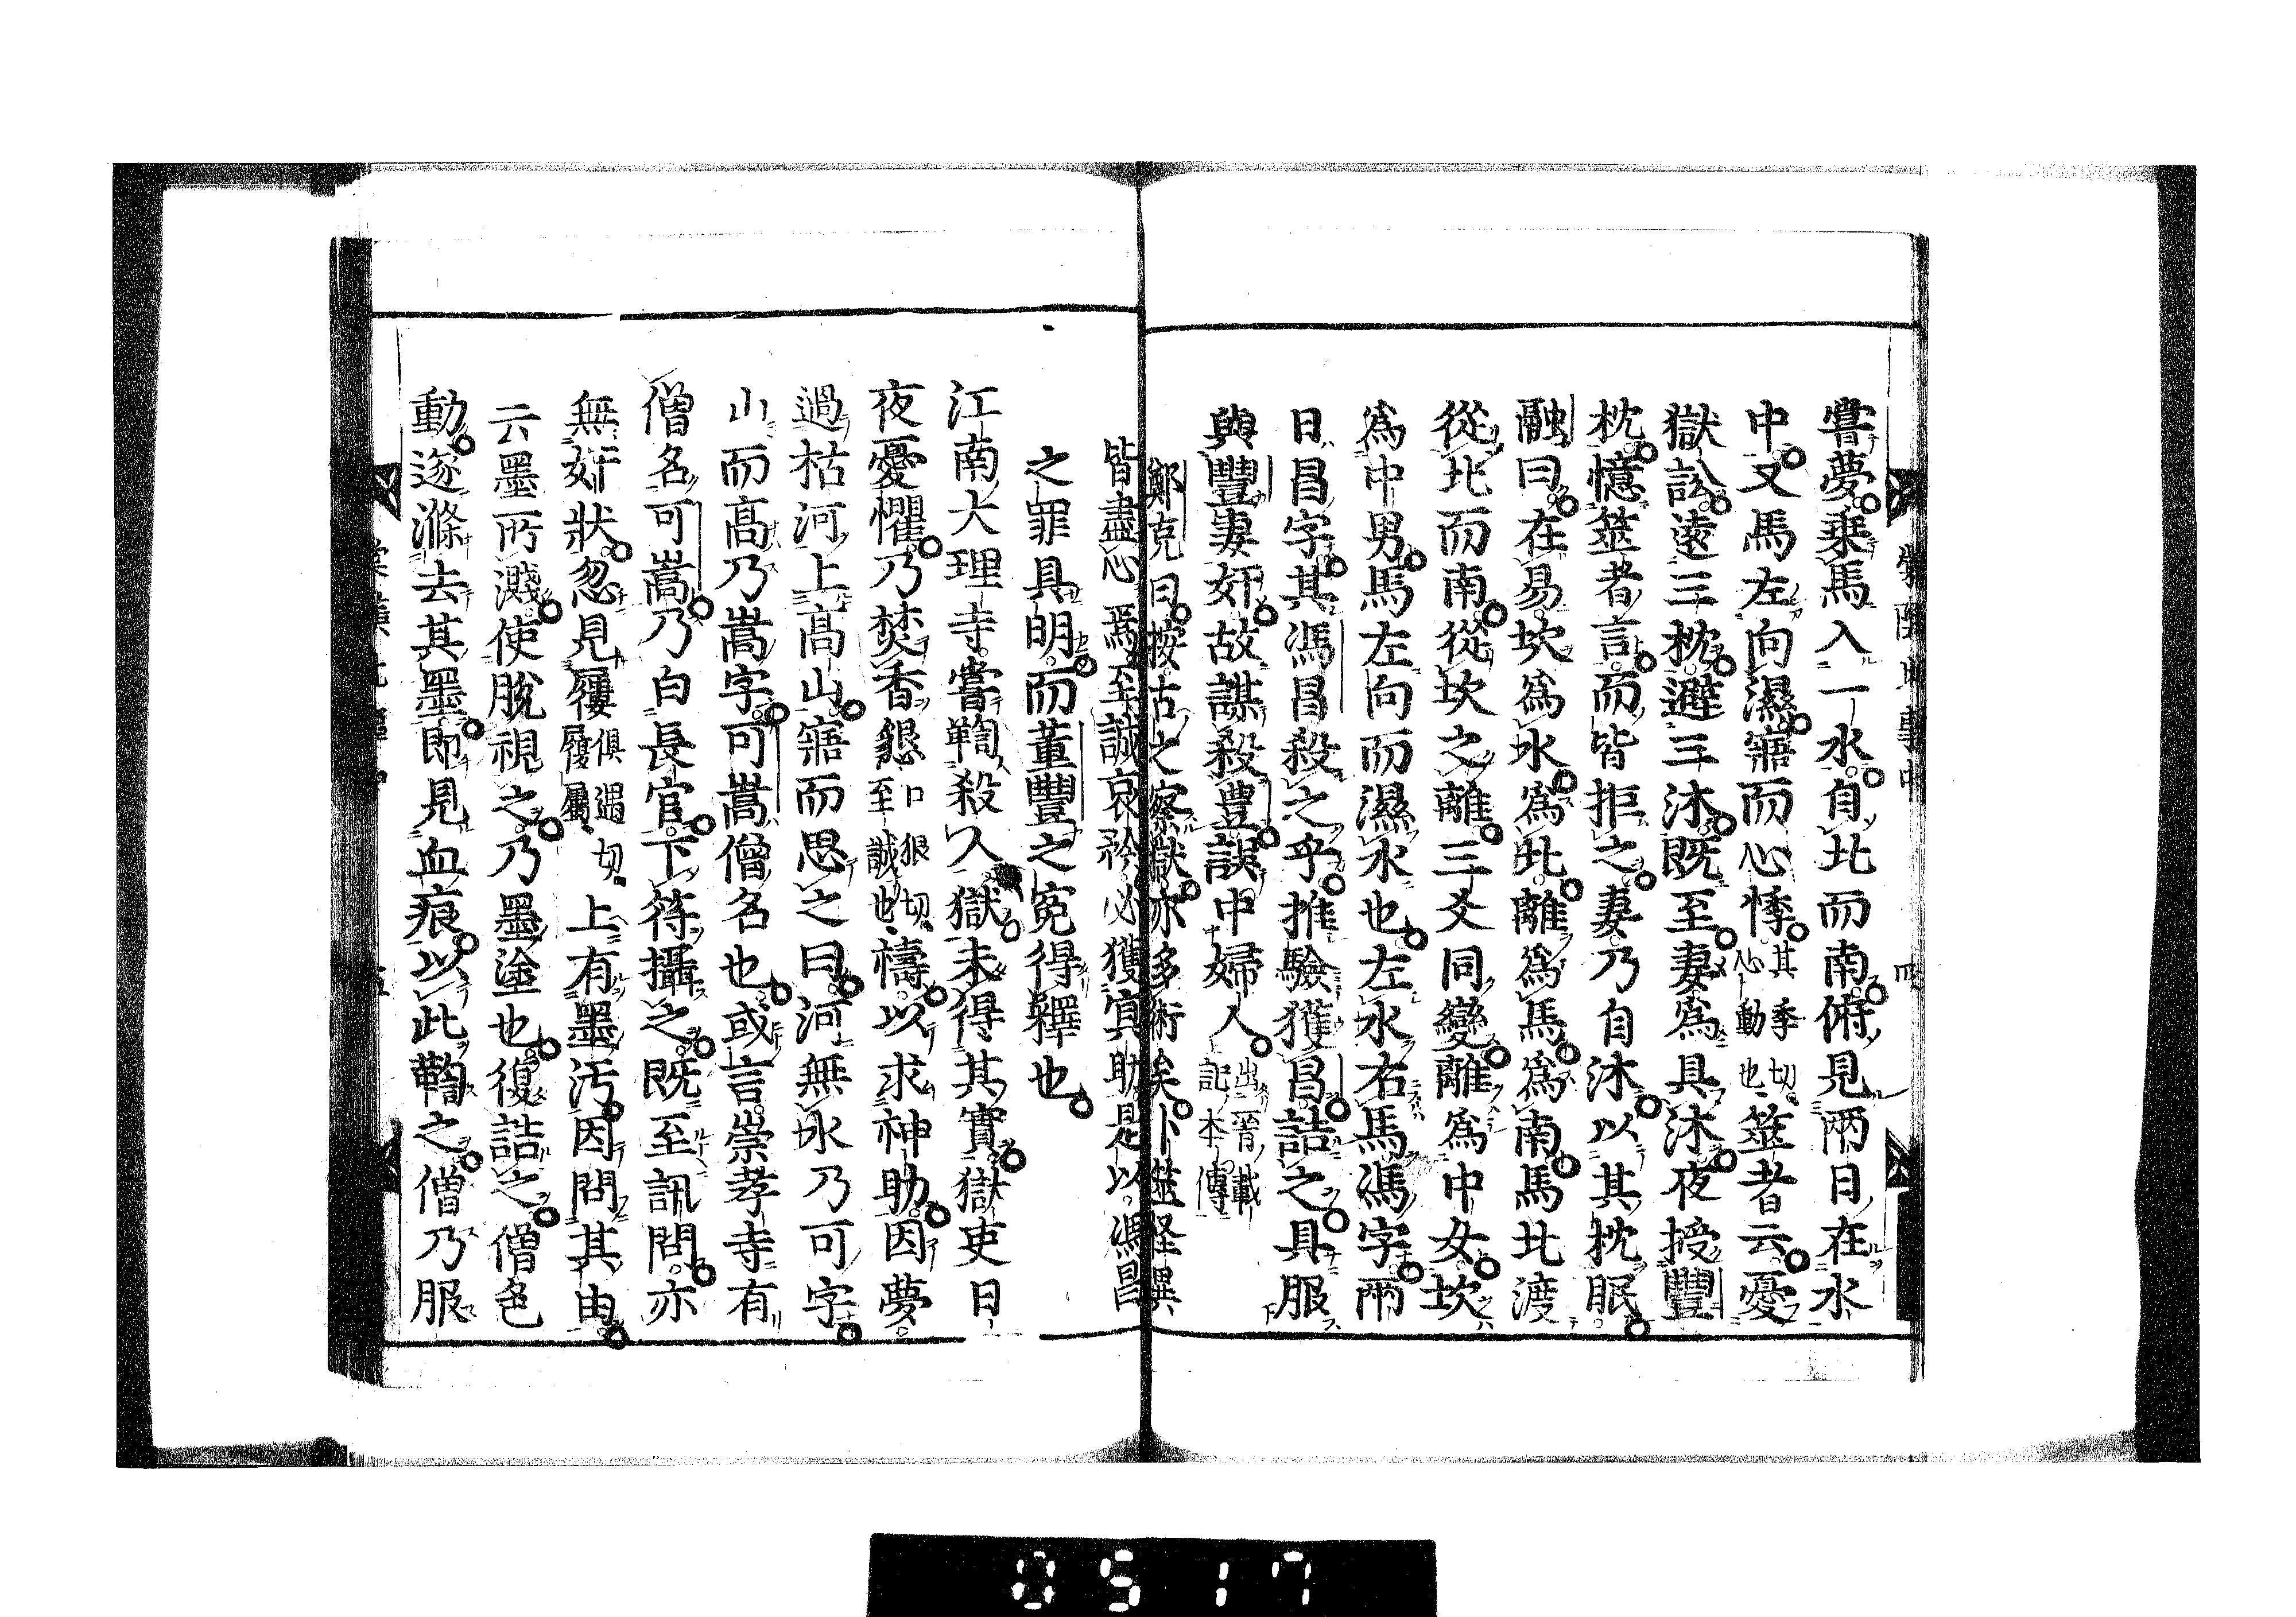 嘗夢乗馬入一水自北而南俯見兩日在水
中又馬左向濕寤而心悸其季切心動也筮者云憂
獄訟遠三枕避三沐既至妻爲具沐夜授豐
枕憶筮者言而皆拒之妻乃自沐以其枕眠
融曰在易坎爲水爲北離爲馬爲南馬北渡
從北而南從坎之離三爻同變離爲中女坎
爲中男馬左向而濕水也左水右馬馮字兩
日昌字其馮昌殺之乎推驗獲昌詰之具服
與豐妻奸故謀殺豊誤中婦人出晉載記本傳
鄭克曰按古之察獄亦多術矣卜筮怪異
皆盡心焉至誠哀矜必獲冥助是以馮昌
之罪具明而董豐之寃得釋也
江南大理寺嘗鞫殺人獄未得其實獄吏日
夜憂懼乃焚香懇口狠切至誠也禱以求神助因夢
過枯河上高山寤而思之曰河無水乃可字
山而高乃嵩字可嵩僧名也或言崇孝寺有
僧名可嵩乃白長官下符攝之既至訊問亦
無奸狀忽見屨俱遇切履屬上有墨汚因問其由
云墨所濺使脫視之乃墨塗也復詰之僧色
動遂滌去其墨即見血痕以此鞫之僧乃服
0517